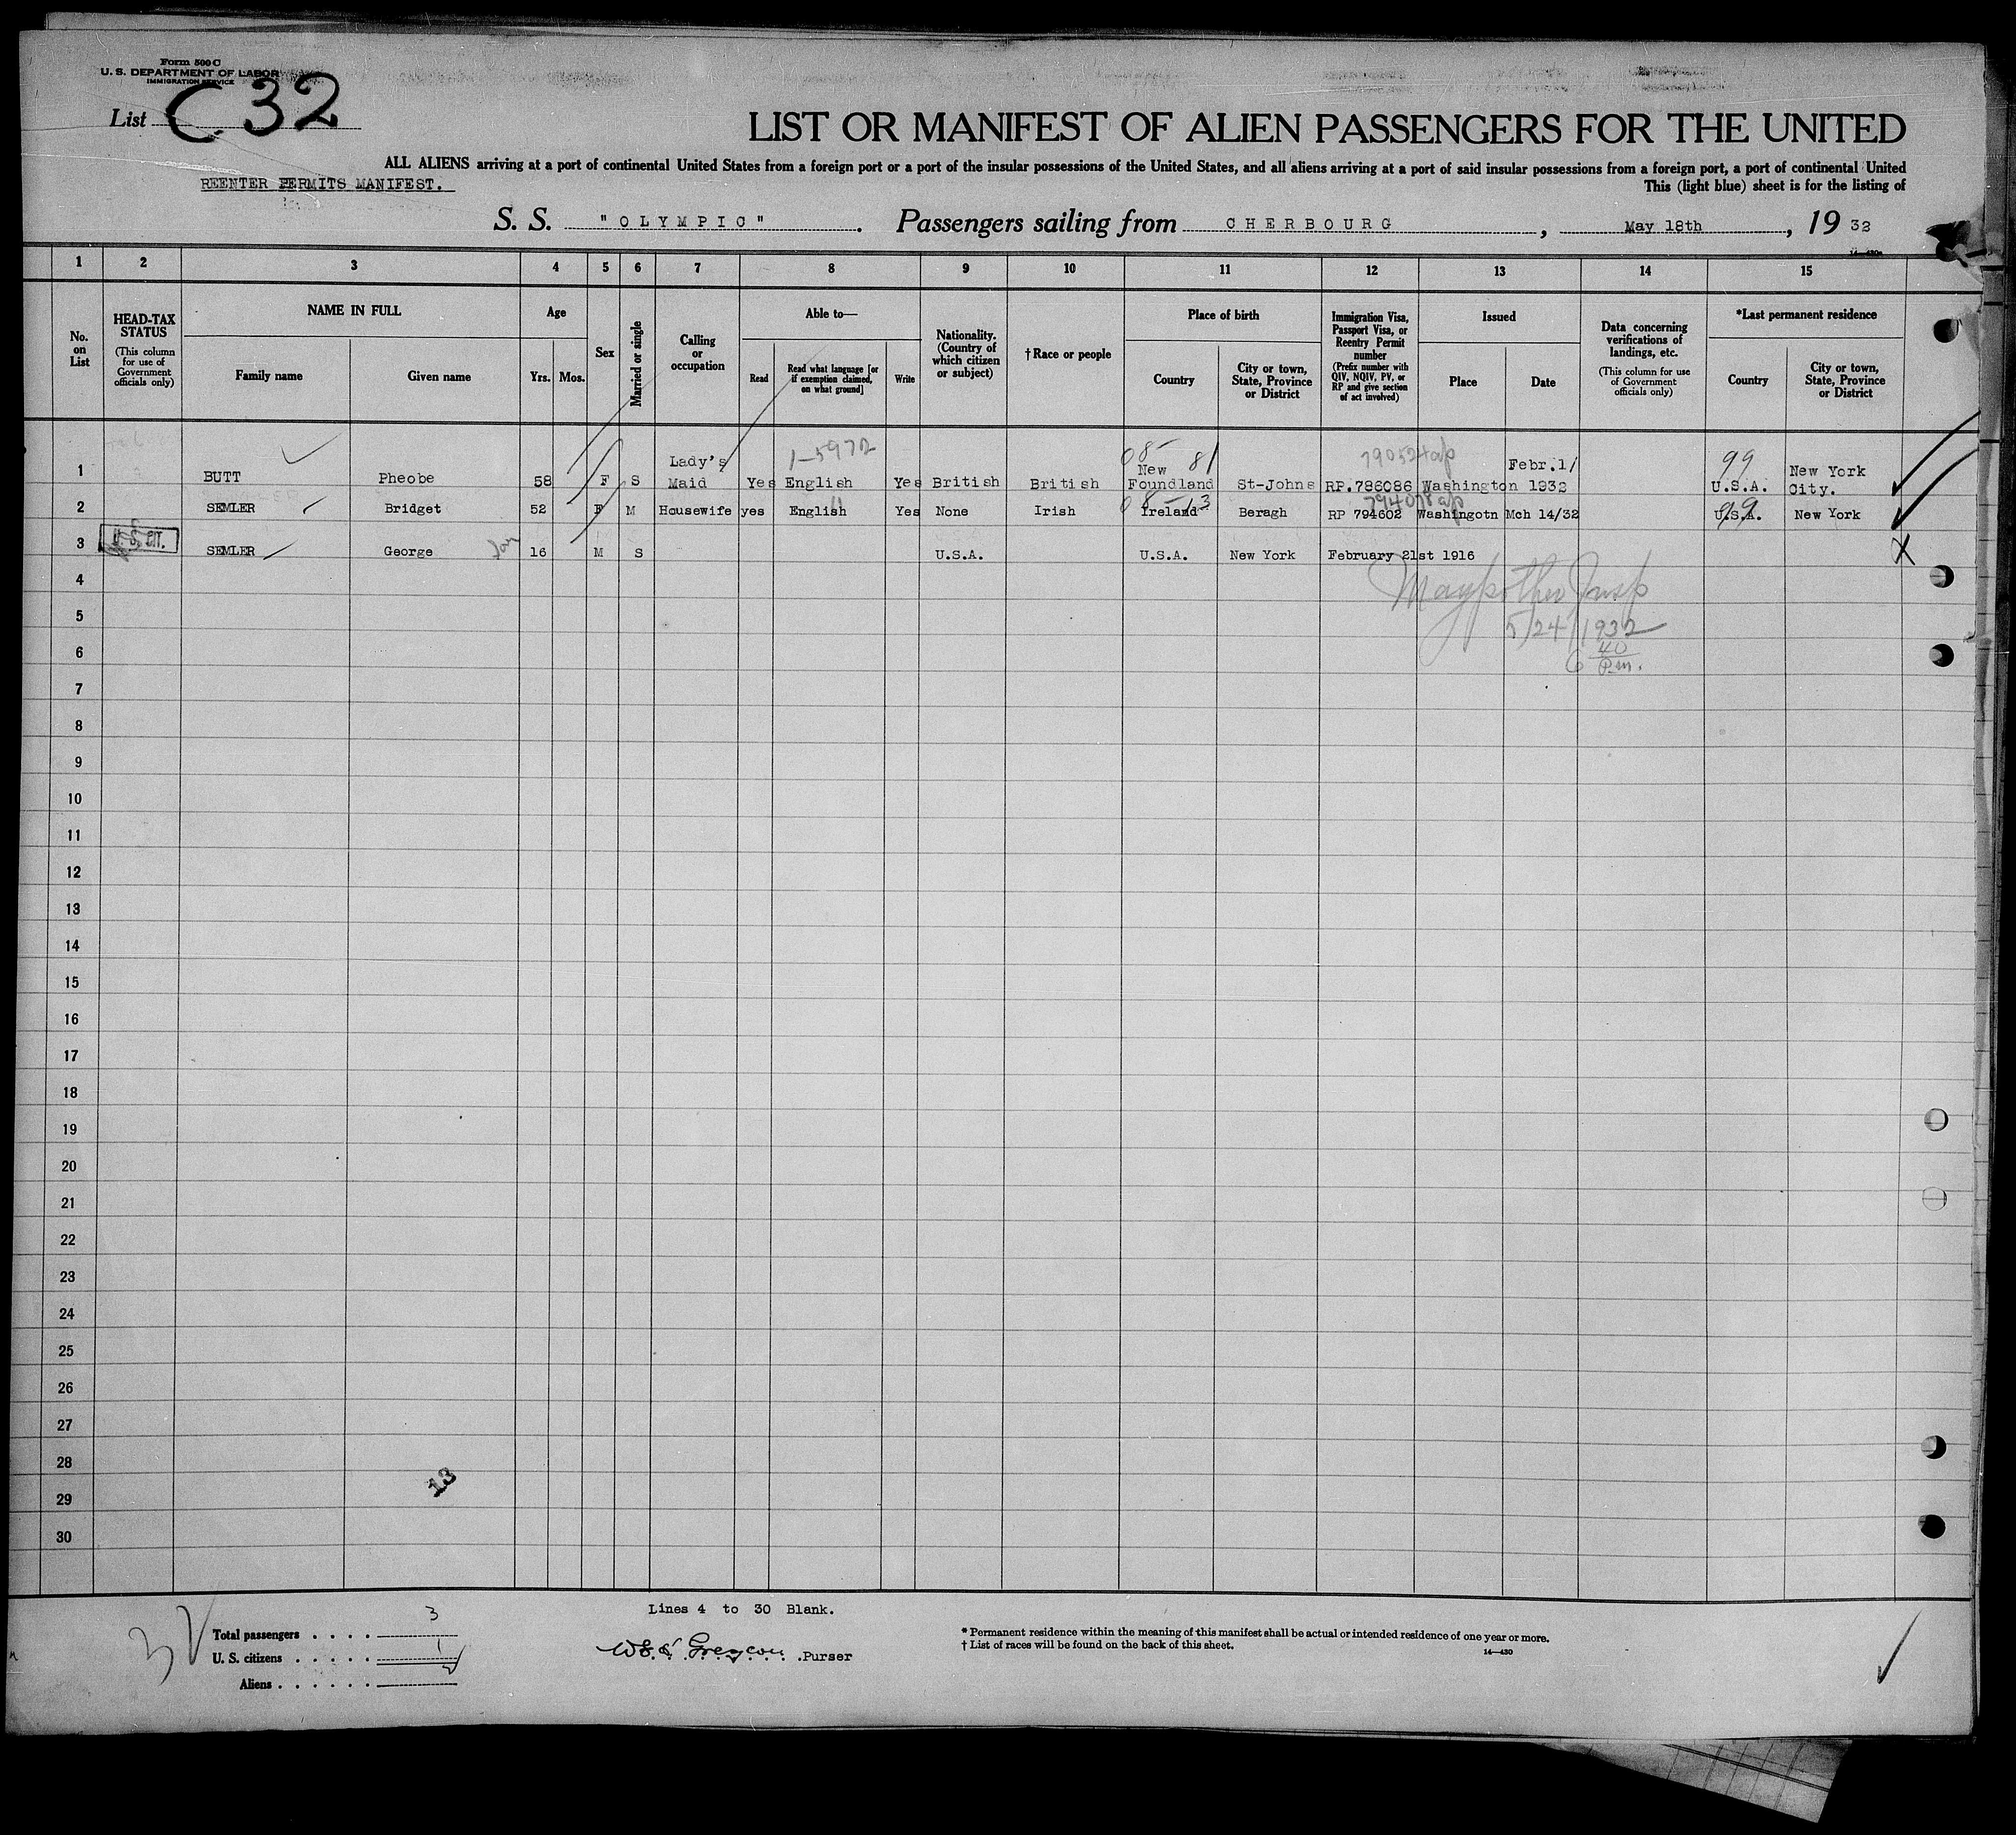 Form 500 C
U. S. DEPARTMENT OF LABOR
IMMIGRATION SERVICE
List C 32
LIST OR MANIFEST OF ALIEN PASSENGERS FOR THE UNITED
ALL ALIENS arriving at a port of continental United States from a foreign port or a port of the insular possessions of the United States, and all aliens arriving at a port of said insular possessions from a foreign port, a port of continental United
REENTER PERMITS MANIFEST.
This (light blue) sheet is for the listing of
S. S. "OLYMPIC". Passengers sailing from CHERBOURG, May 18th, 19 32
1 2 3 4 5 6 7 8 9 10 11 12 13 14 15
No. on List
HEAD-TAX STATUS (This column for use of Government officials only)
NAME IN FULL
Family name Given name
Age
Yrs. Mos.
Sex
Married or single
Calling or occupation
Able to—
Read
Read what language [or if exemption claimed, on what ground]
Write
Nationality. (Country of which citizen or subject)
†Race or people
Place of birth
Country
City or town, State, Province or District
Immigration Visa, Passport Visa, or Reentry Permit number (Prefix number with QIV, NQIV, PV, or RP and give section of act involved)
Issued
Place Date
Data concerning verifications of landings, etc. (This column for use of Government officials only)
*Last permanent residence
Country
City or town, State, Province or District
1-5972 08- 81 99
1 BUTT Pheobe 58 F S Lady's Maid Yes English Yes British British New Foundland St-Johns RP.786086 Washington Febr.1/ 1932 U.S.A. New York City.
08-13 99
2 SEMLER Bridget 52 F M Housewife yes English Yes None Irish Ireland Beragh RP 794602 Washingotn Mch 14/32 U.S.A. New York
3 U. S. CIT. SEMLER George 16 M S U.S.A. U.S.A. New York February 21st 1916
4
5 5/24/1932
6 6 40 Pm.
7
8
9
10
11
12
13
14
15
16
17
18
19
20
21
22
23
24
25
26
27
28
29
30
13
Lines 4 to 30 Blank.
Total passengers . . . . 3
U. S. citizens . . . . . 1
Aliens . . . . . .
Purser
* Permanent residence within the meaning of this manifest shall be actual or intended residence of one year or more.
† List of races will be found on the back of this sheet.
14—430